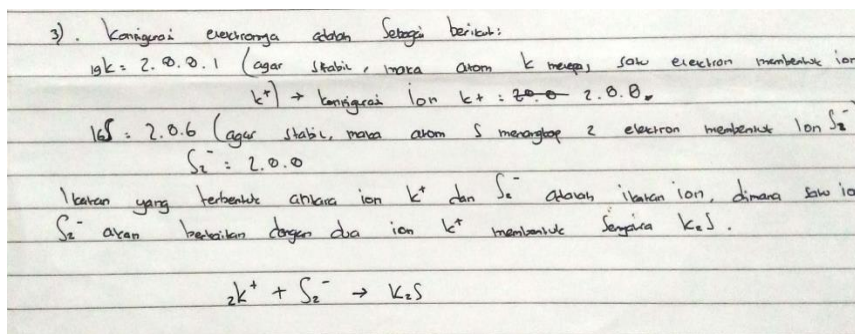 3). Konfigurasi elektronnya adalah Sebagai berikut:
19K = 2.8.8.1 (agar Stabil, maka atom K melepas satu elektron membentuk ion
K⁺) → konfigurasi ion K+ = 2.8.8.
16S = 2.8.6 (agar stabil, maka atom S menangkap 2 elektron membentuk Ion S₂⁻
S₂⁻ = 2.8.8
Ikatan yang terbentuk antara ion K⁺ dan S₂⁻ adalah ikatan ion, dimana satu io
S₂⁻ akan berkaitan dengan dua ion K⁺ membentuk Senyawa K₂S.
₂K⁺ + S₂⁻ → K₂S